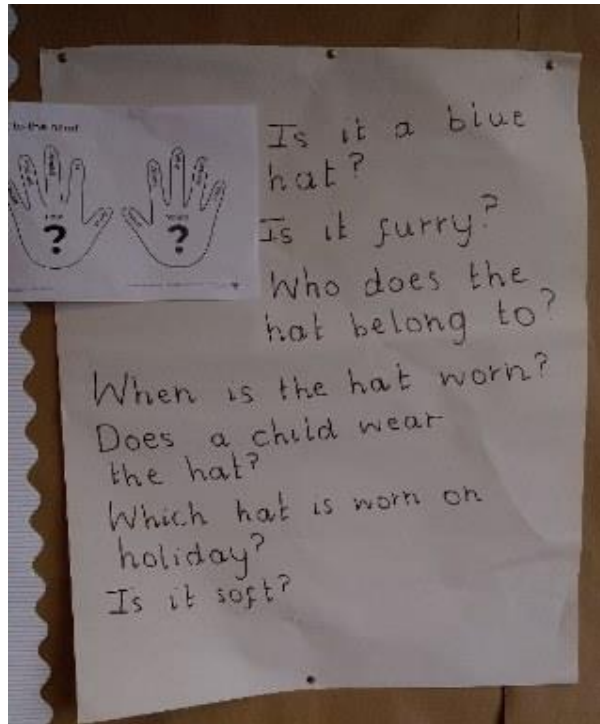 to the hand
?
?
Is it a blue
hat?
Is it furry?
Who does the
hat belong to?
When is the hat worn?
Does a child wear
the hat?
Which hat is worn on
holiday?
Is it soft?